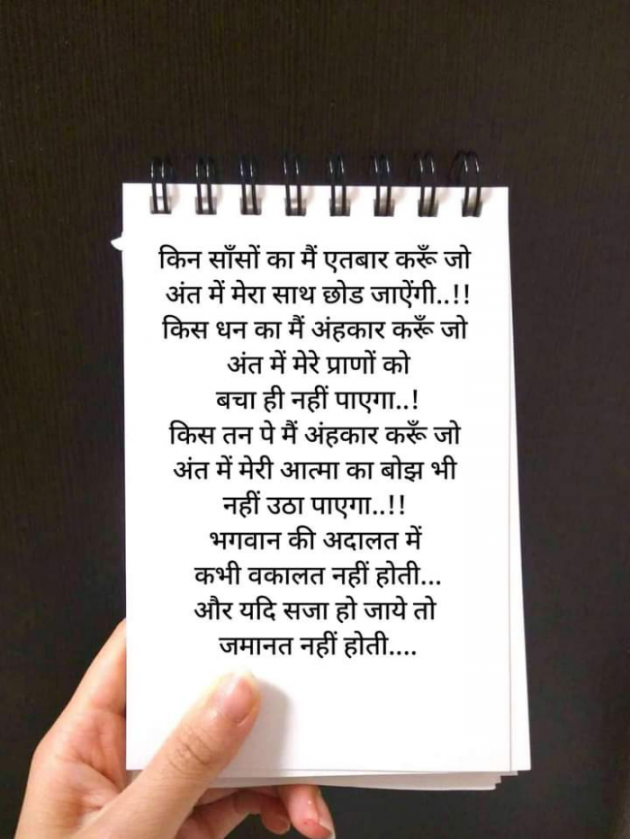 किन साँसों का मैं एतबार करूँ जो
अंत में मेरा साथ छोड जाऐंगी..!!
किस धन का मैं अंहकार करूँ जो
अंत में मेरे प्राणों को
बचा ही नहीं पाएगा..!
किस तन पे मैं अंहकार करूँ जो
अंत में मेरी आत्मा का बोझ भी
नहीं उठा पाएगा..!!
भगवान की अदालत में
कभी वकालत नहीं होती...
और यदि सजा हो जाये तो
जमानत नहीं होती....